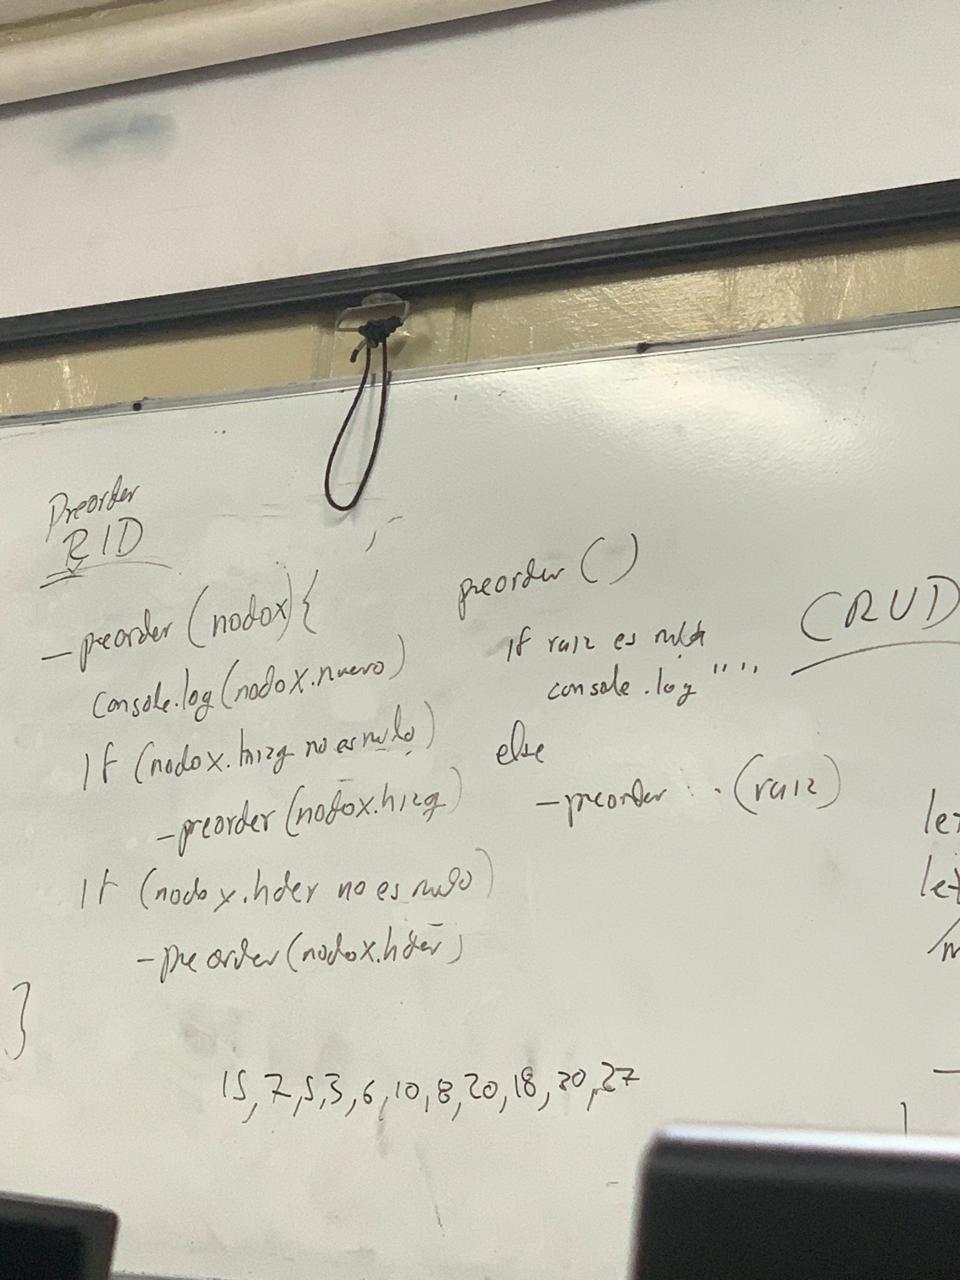 Preorder
RID
_preorder (nodox) {
console.log(nodox.nuevo)
If (nodox.hizq no es nulo)
_preorder (nodox.hizq)
If (nodox.hder no es nulo)
_preorder(nodox.hder)
}
preorder ()
if raiz es nula
console.log "",,
else
_preorder (raiz)
CRUD
let
let
15, 7, 5, 3, 6, 10, 8, 20, 18, 30, 27